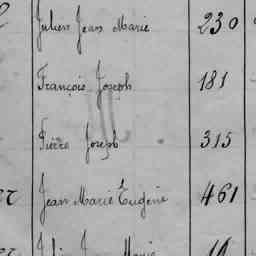 Julien Jean Marie 230
François Joseph 181
Pierre Joseph 315
Jean Marie Eugène 461